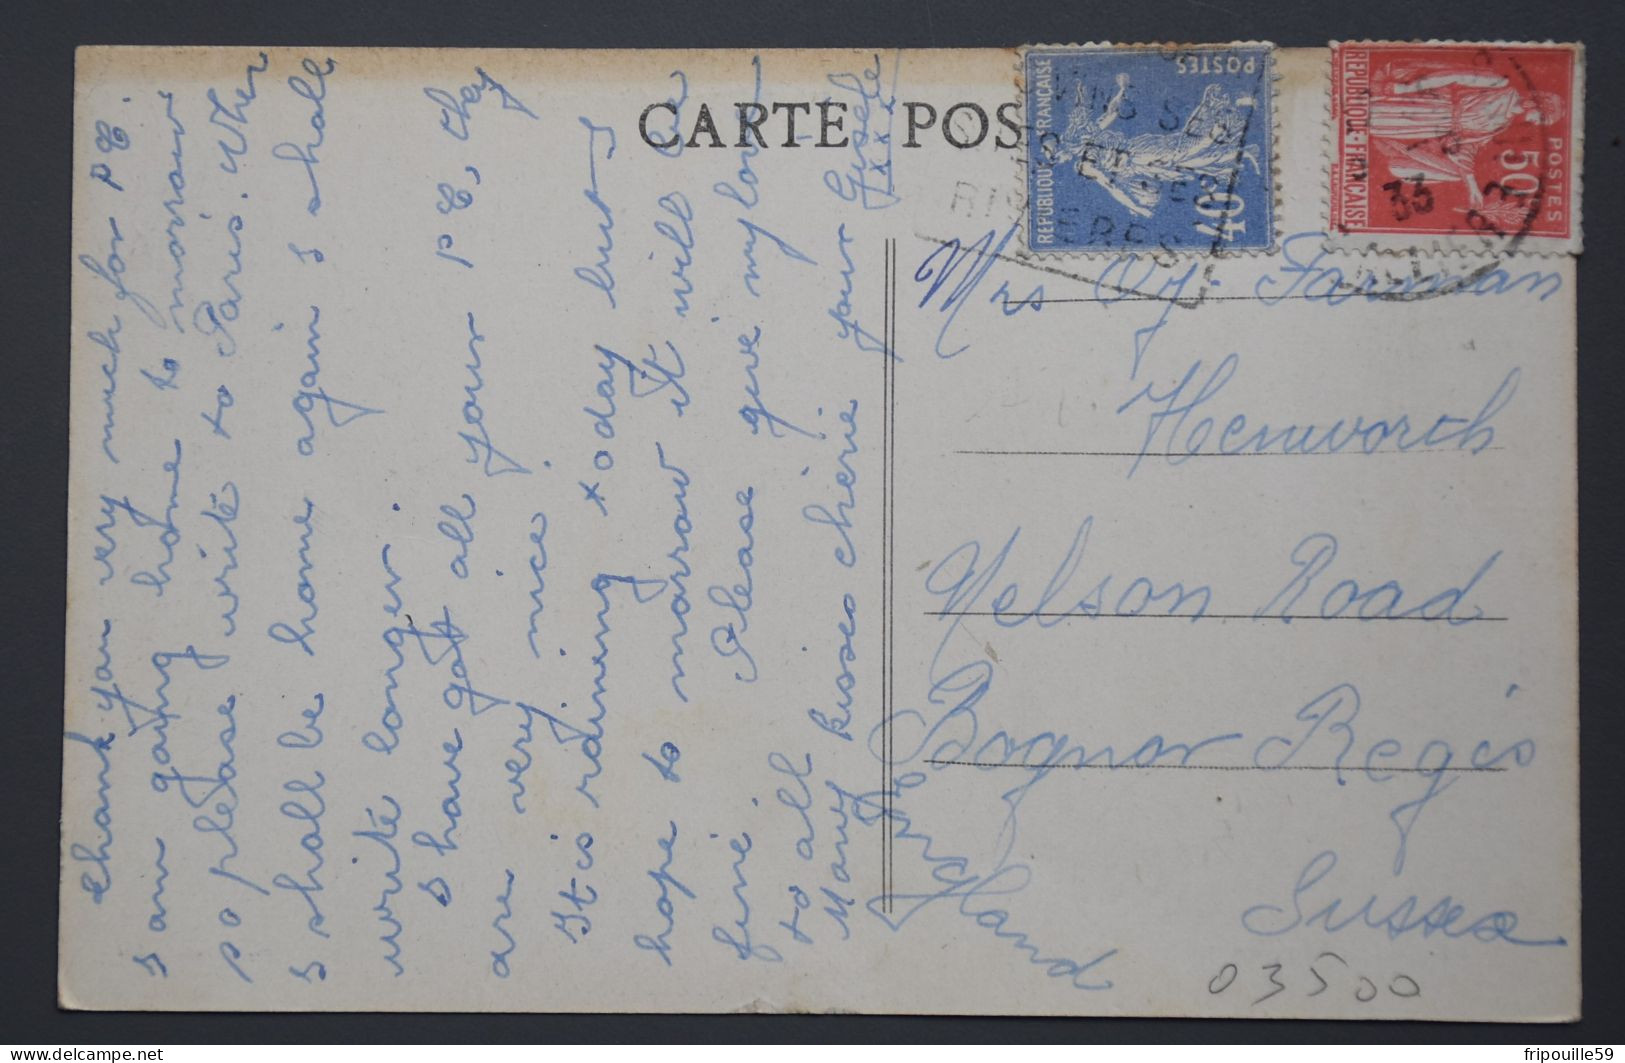 CARTE POS
Thank you very much for P C.
I am going home to morrow
so please write to Paris. When
I shall be home again I shall
write longer.
I have got all your P C, they
are very nice.
It is raining today but I
hope to morrow it will be
fine. Please give my love
to all
Many kisses cherie your Gisele
xxxx
POSTES
REPUBLIQUE FRANCAISE
40
SES
ET SES
RIVIERES
REPUBLIQUE FRANCAISE
POSTES
50
33
Mrs Farman
Kenworth
Nelson Road
Bognor Regis
Sussex
England
03500
delcampe.net
fripouille59